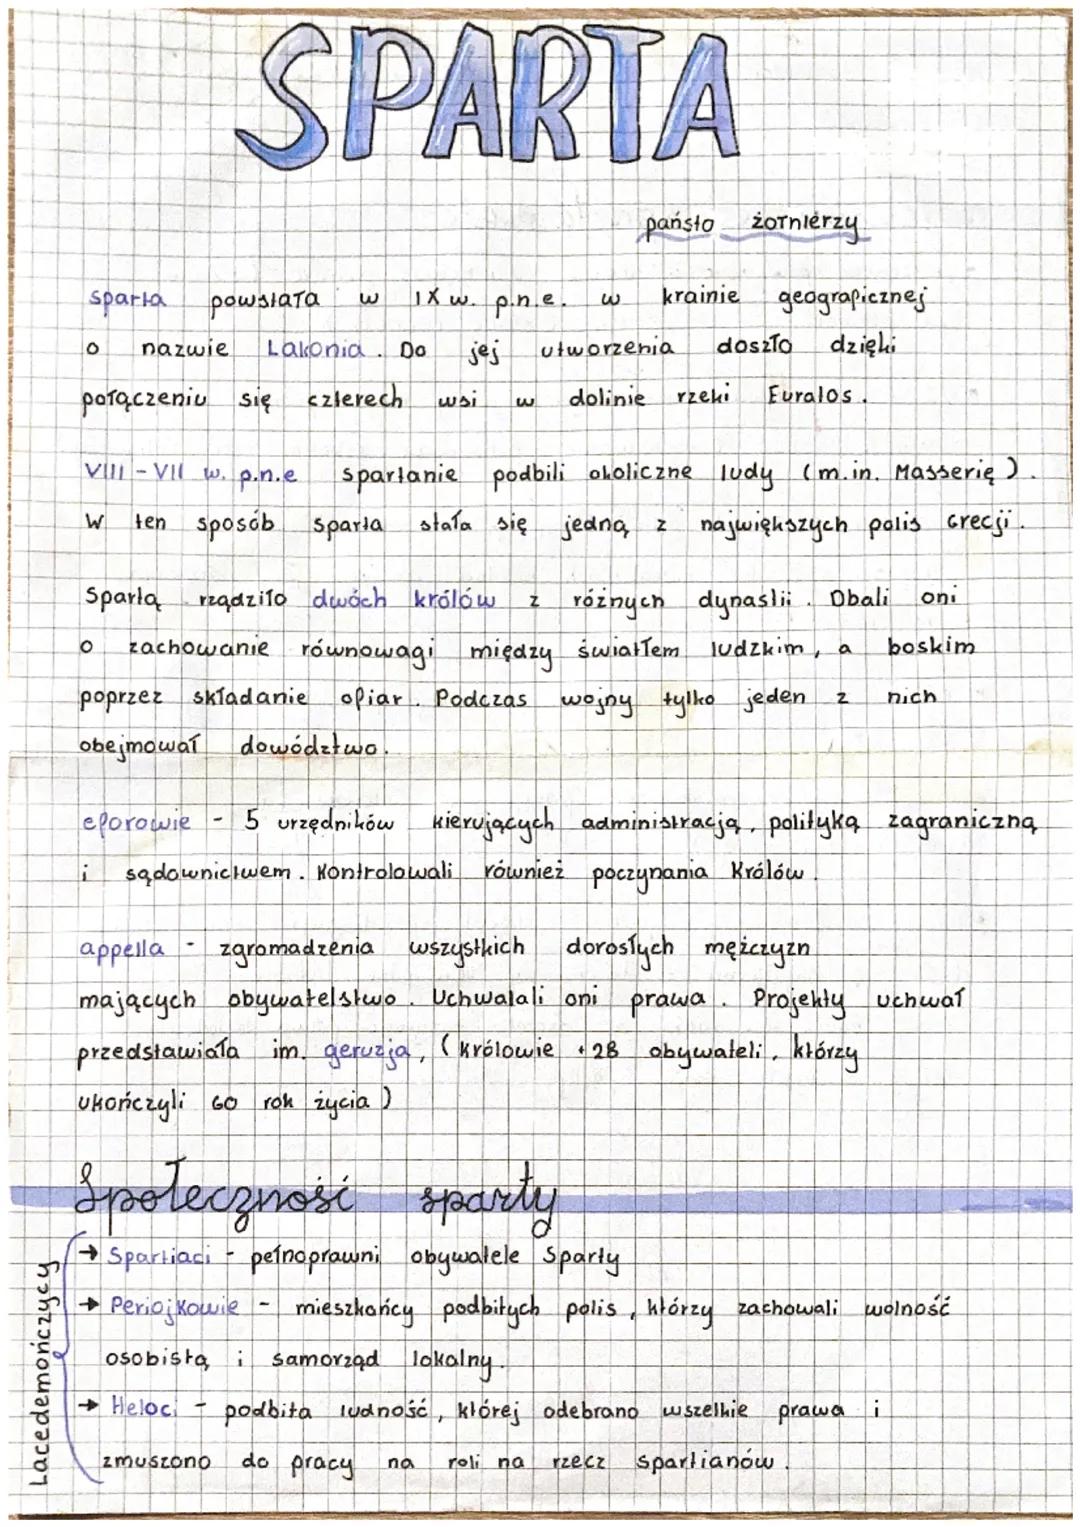 SPARTA
państo żołnierzy
Sparta powstała w IX w. p.n.e. w krainie geograficznej
o nazwie Lakonia. Do jej utworzenia doszło dzięki
połączeniu się czterech wsi w dolinie rzeki Euratos.
VIII-VII w. p.n.e spartanie podbili okoliczne ludy (m.in. Masserię).
W ten sposób sparta stała się jedną z największych polis Grecji.
Spartą rządziło dwóch królów z różnych dynastii. Dbali oni
o zachowanie równowagi między światłem ludzkim, a boskim
poprzez składanie ofiar. Podczas wojny tylko jeden z nich
obejmował dowództwo.
eforowie - 5 urzędników kierujących administracją, polityką zagraniczną
i sądownictwem. Kontrolowali również poczynania Królów.
appella - zgromadzenia wszystkich dorosłych mężczyzn
mających obywatelstwo. Uchwalali oni prawa. Projekty uchwał
przedstawiała im. geruzja, (Królowie +28 obywateli, którzy
ukończyli 60 rok życia)
Społeczność sparty
Lacedemończycy
→ Spartiaci - pełnoprawni obywatele Sparty
→ Periojkowie - mieszkańcy podbitych polis, którzy zachowali wolność
osobistą i samorząd lokalny.
→ Heloci - podbita ludność, której odebrano wszelkie prawa i
zmuszono do pracy na roli na rzecz spartianów.